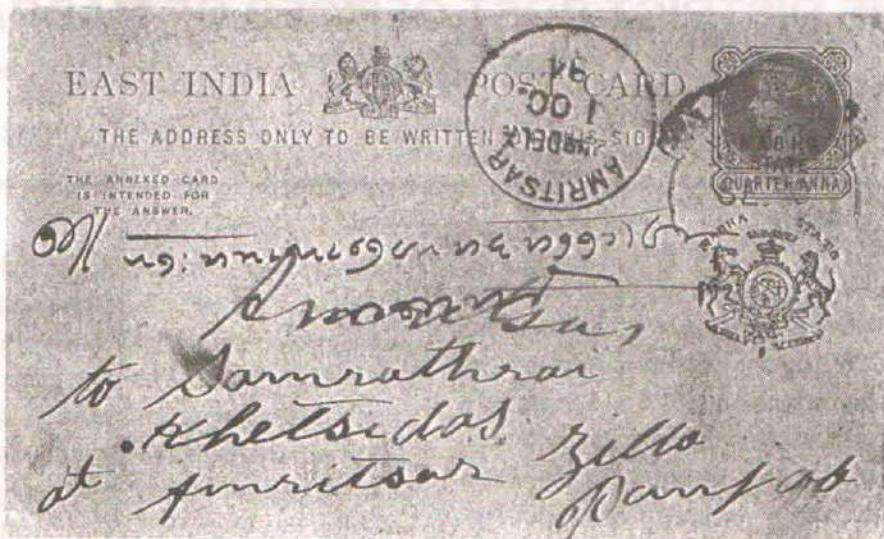 EAST INDIA POST CARD
THE ADDRESS ONLY TO BE WRITTEN THIS SIDE
THE ANNEXED CARD
IS INTENDED FOR
THE ANSWER.
AMRITSAR
DELY.
1 OC.
94
NABHA
STATE
QUARTER ANNA
NABHA STATE
Amritsar
to Samrathrai
Khetsidas
at Amritsar Zilla
Panjab